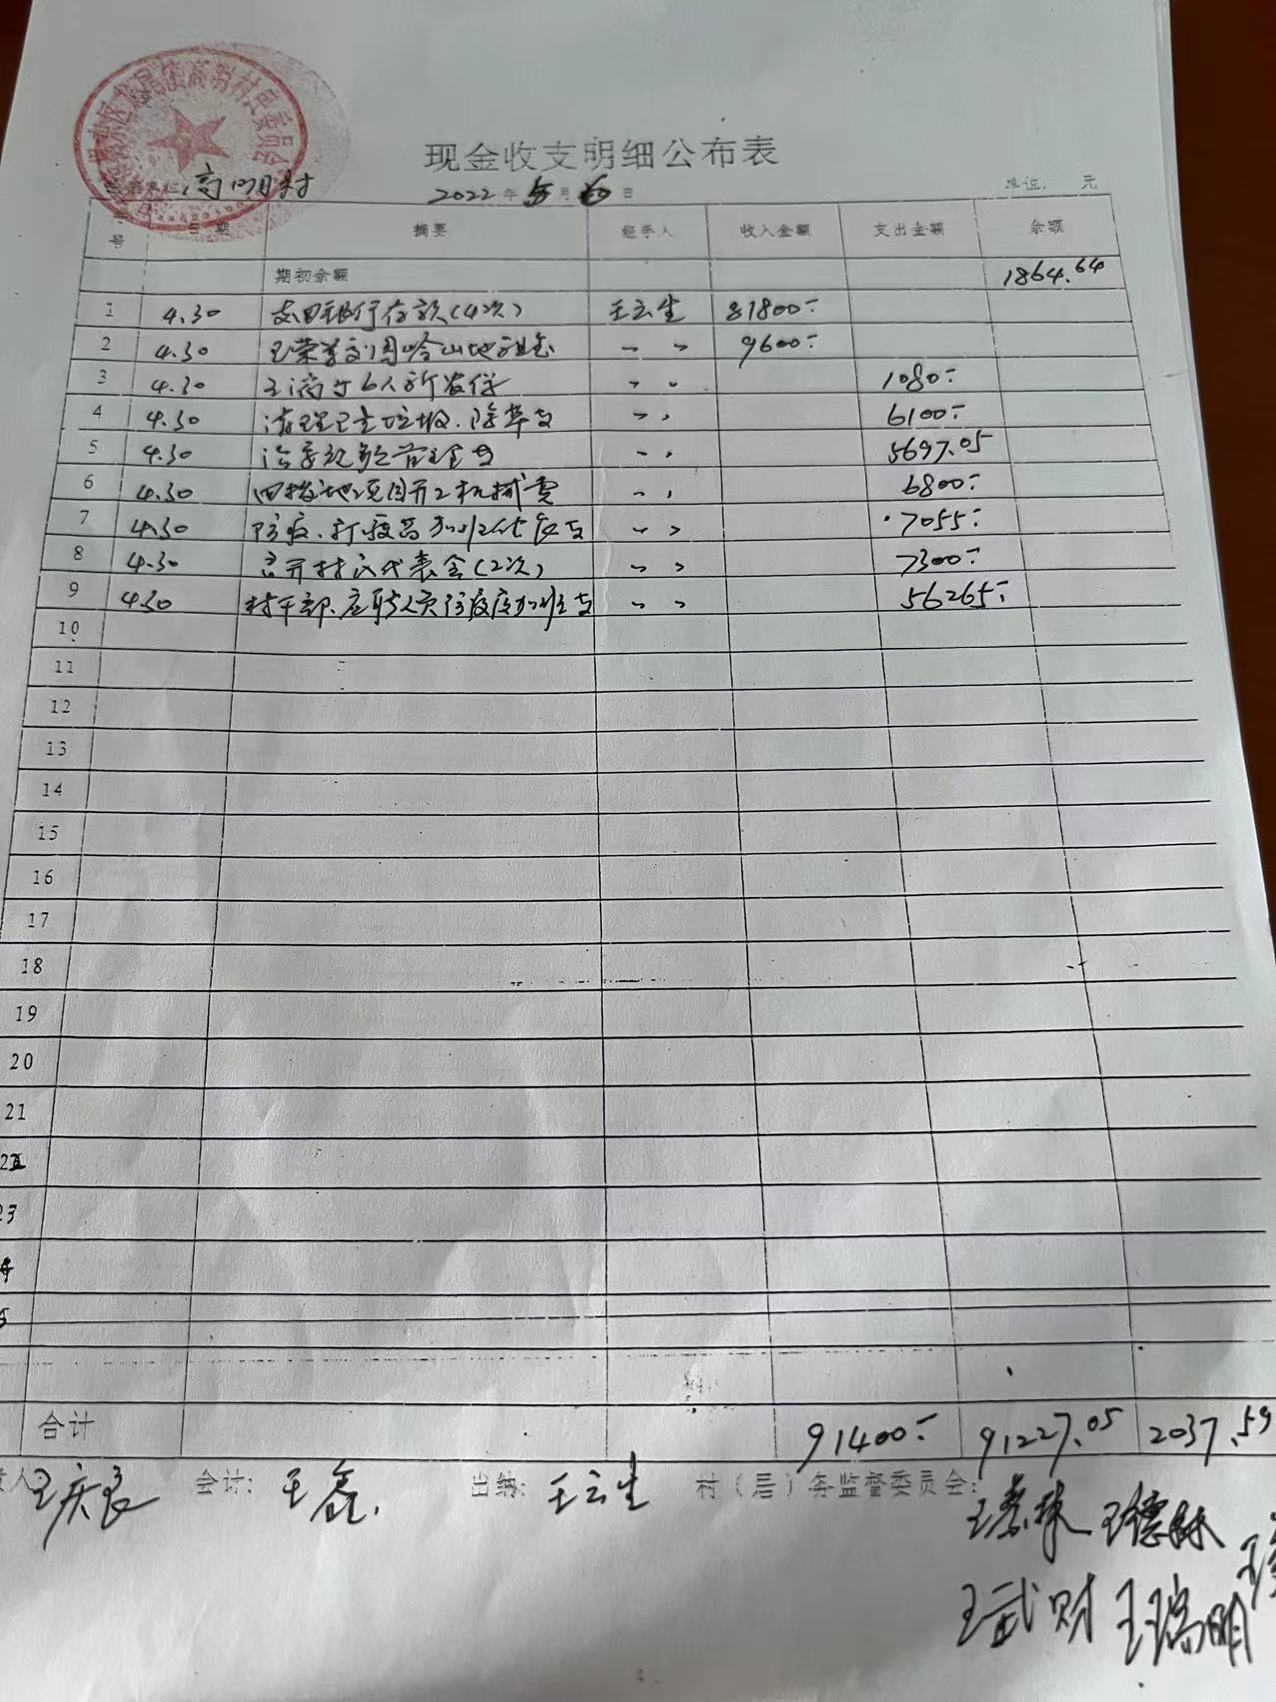 现金收支明细公布表
高明村 2022年5月10日 单位: 元
号 日期 摘要 经手人 收入金额 支出金额 余额
期初余额 1864.64
1 4.30 支回银行存款(4次) 王云生 81800-
2 4.30 山地租金 〃 9600-
3 4.30 6人 〃 1080-
4 4.30 清理卫生垃圾.除草支 〃 6100-
5 4.30 〃 5697.05
6 4.30 地项目开工机械费 〃 6800-
7 4.30 防疫.打疫苗加班 支 〃 7055-
8 4.30 召开村民代表会(2次) 〃 7300-
9 4.30 村干部.应聘人员防疫 加班支 〃 56265-
10
11
12
13
14
15
16
17
18
19
20
21
22
23
合计 91400- 91227.05 2037.59
王庆良 会计: 王鑫 出纳: 王云生 村(居)务监督委员会:
王德林
王武财 王瑞明